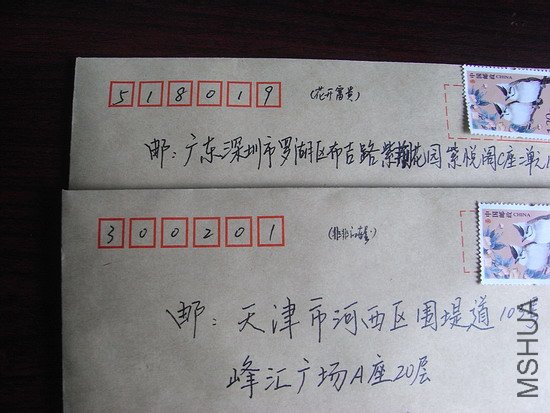 518019 (花开富贵)
中国邮政 CHINA
邮:广东深圳市罗湖区布吉路紫瓶花园紫悦阁C座2单元1
300201
中国邮政 CHINA
邮:天津市河西区围堤道10
峰汇广场A座20层
MSHUA